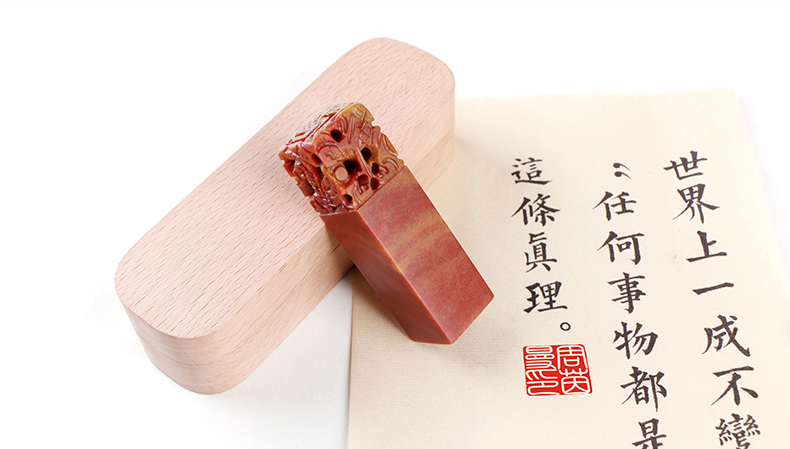 世界上一成不變
“任何事物都是
這條眞理。
周茵
印